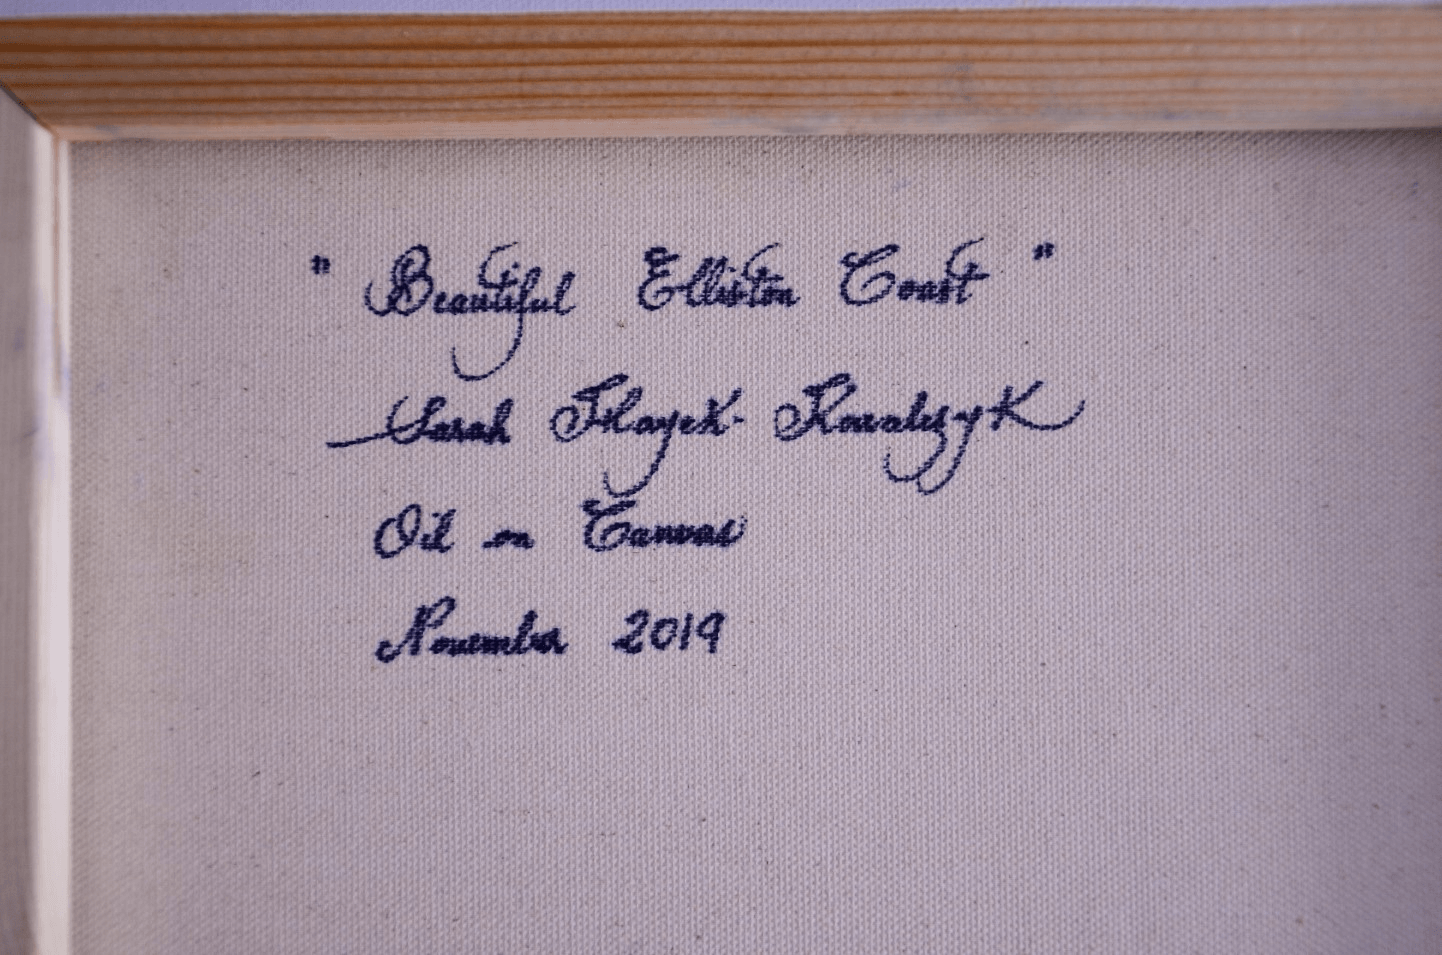 " Beautiful Elliston Coast "
Sarah Hayek-Kowalczyk
Oil on Canvas
November 2019